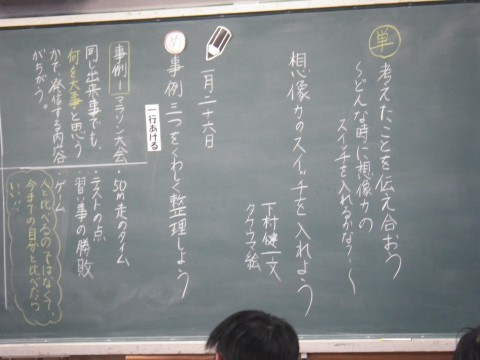 単 考えたことを伝え合おう
～どんな時に想像力の
スイッチを入れるかな?～
想像力のスイッチを入れよう
下村健一 文
タケウマ 絵
一月二十六日
め 事例三つをくわしく整理しよう
一行あける
事例1 マラソン大会
同じ出来事でも、
何を大事と思う
かで、発信する内容
がちがう。
・50m走のタイム
・テストの点
・習い事の勝敗
・ゲーム
人と比べるのではなくて、
今までの自分と比べたら
いい!!